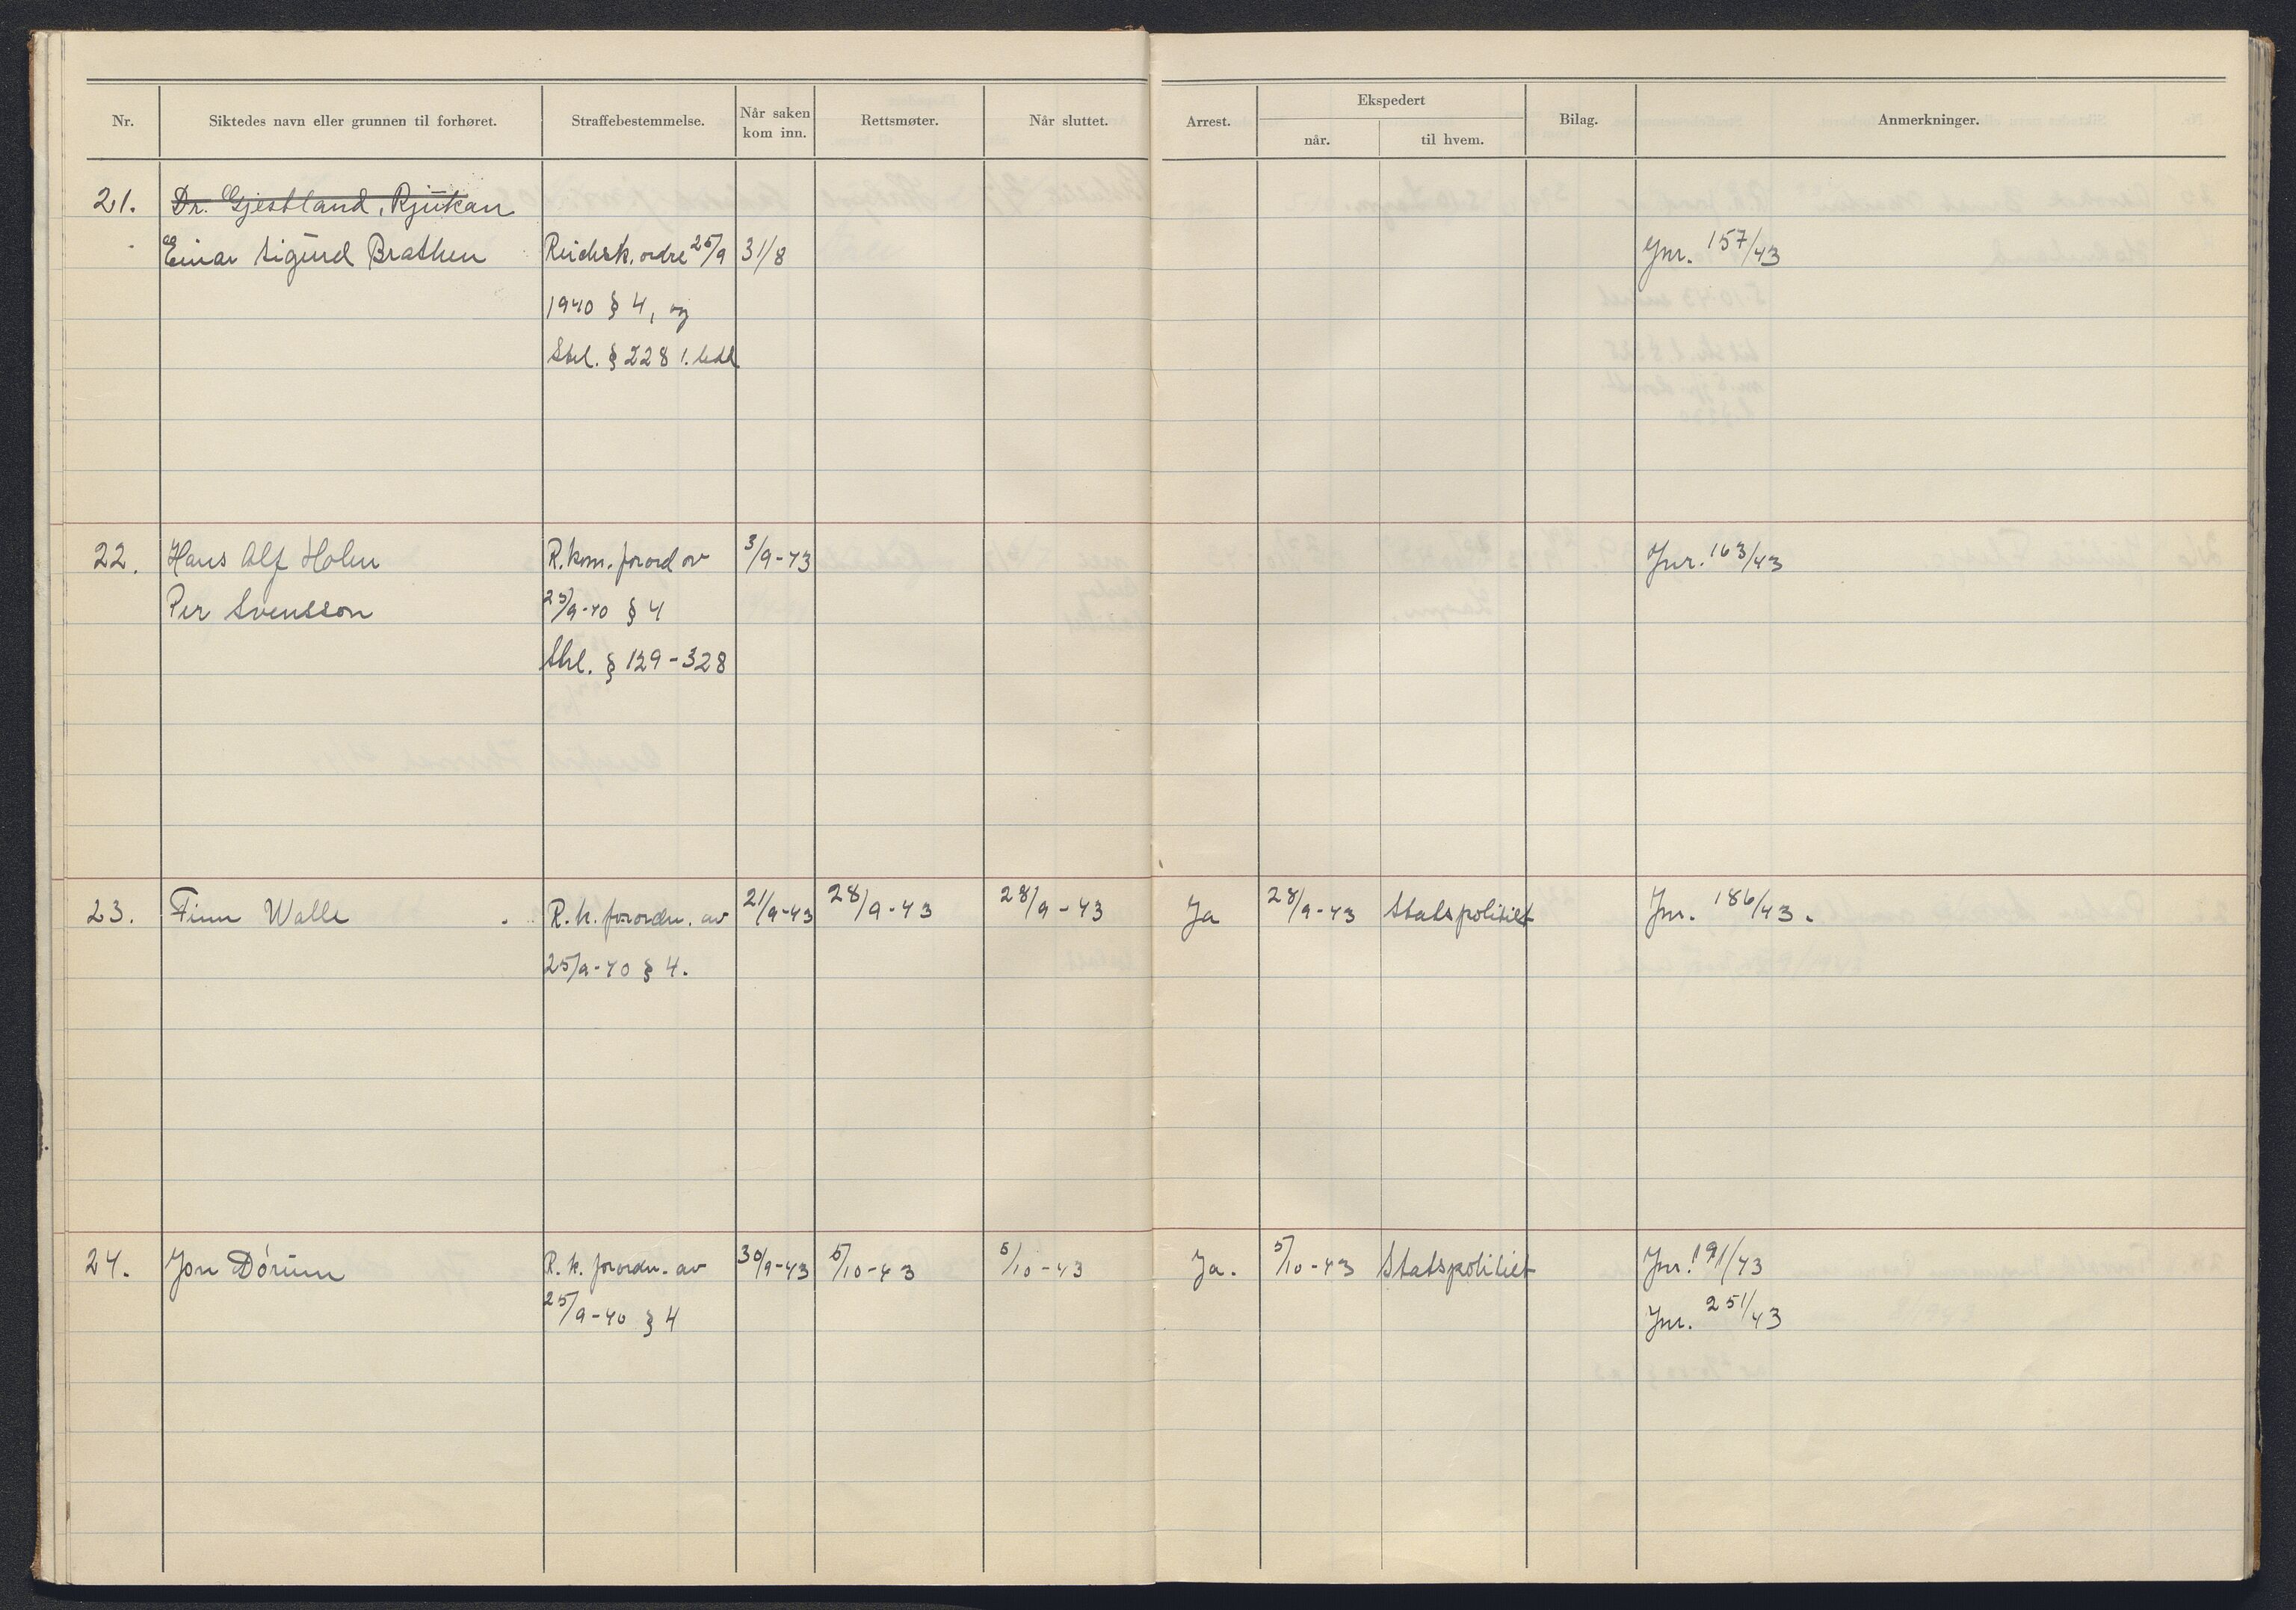 Nr. Siktedes navn eller grunnen til forhøret. Straffebestemmelse. Når saken kom inn. Rettsmøter. Når sluttet. Arrest. Ekspedert når. til hvem. Bilag. Anmerkninger.
21. Dr. Gjestland, Rjukan
Einar Sigurd Brathen Reichsk. ordre 25/9 31/8 Jnr. 157/43
1940 § 4, og
Strl. § 228 1. ledd
22. Hans Alf Holm R.kom. forord av 3/9-43 Jnr. 163/43
Per Svensson 25/9-40 § 4
Strl. § 129-328
23. Finn Walle R.k. forordn. av 21/9-43 28/9-43 28/9-43 Ja 28/9-43 Statspolitiet Jnr. 186/43.
25/9-40 § 4.
24. Jon Dørum R.k. forordn. av 30/9-43 5/10-43 5/10-43 Ja. 5/10-43 Statspolitiet Jnr. 191/43
25/9-40 § 4 Jnr. 251/43